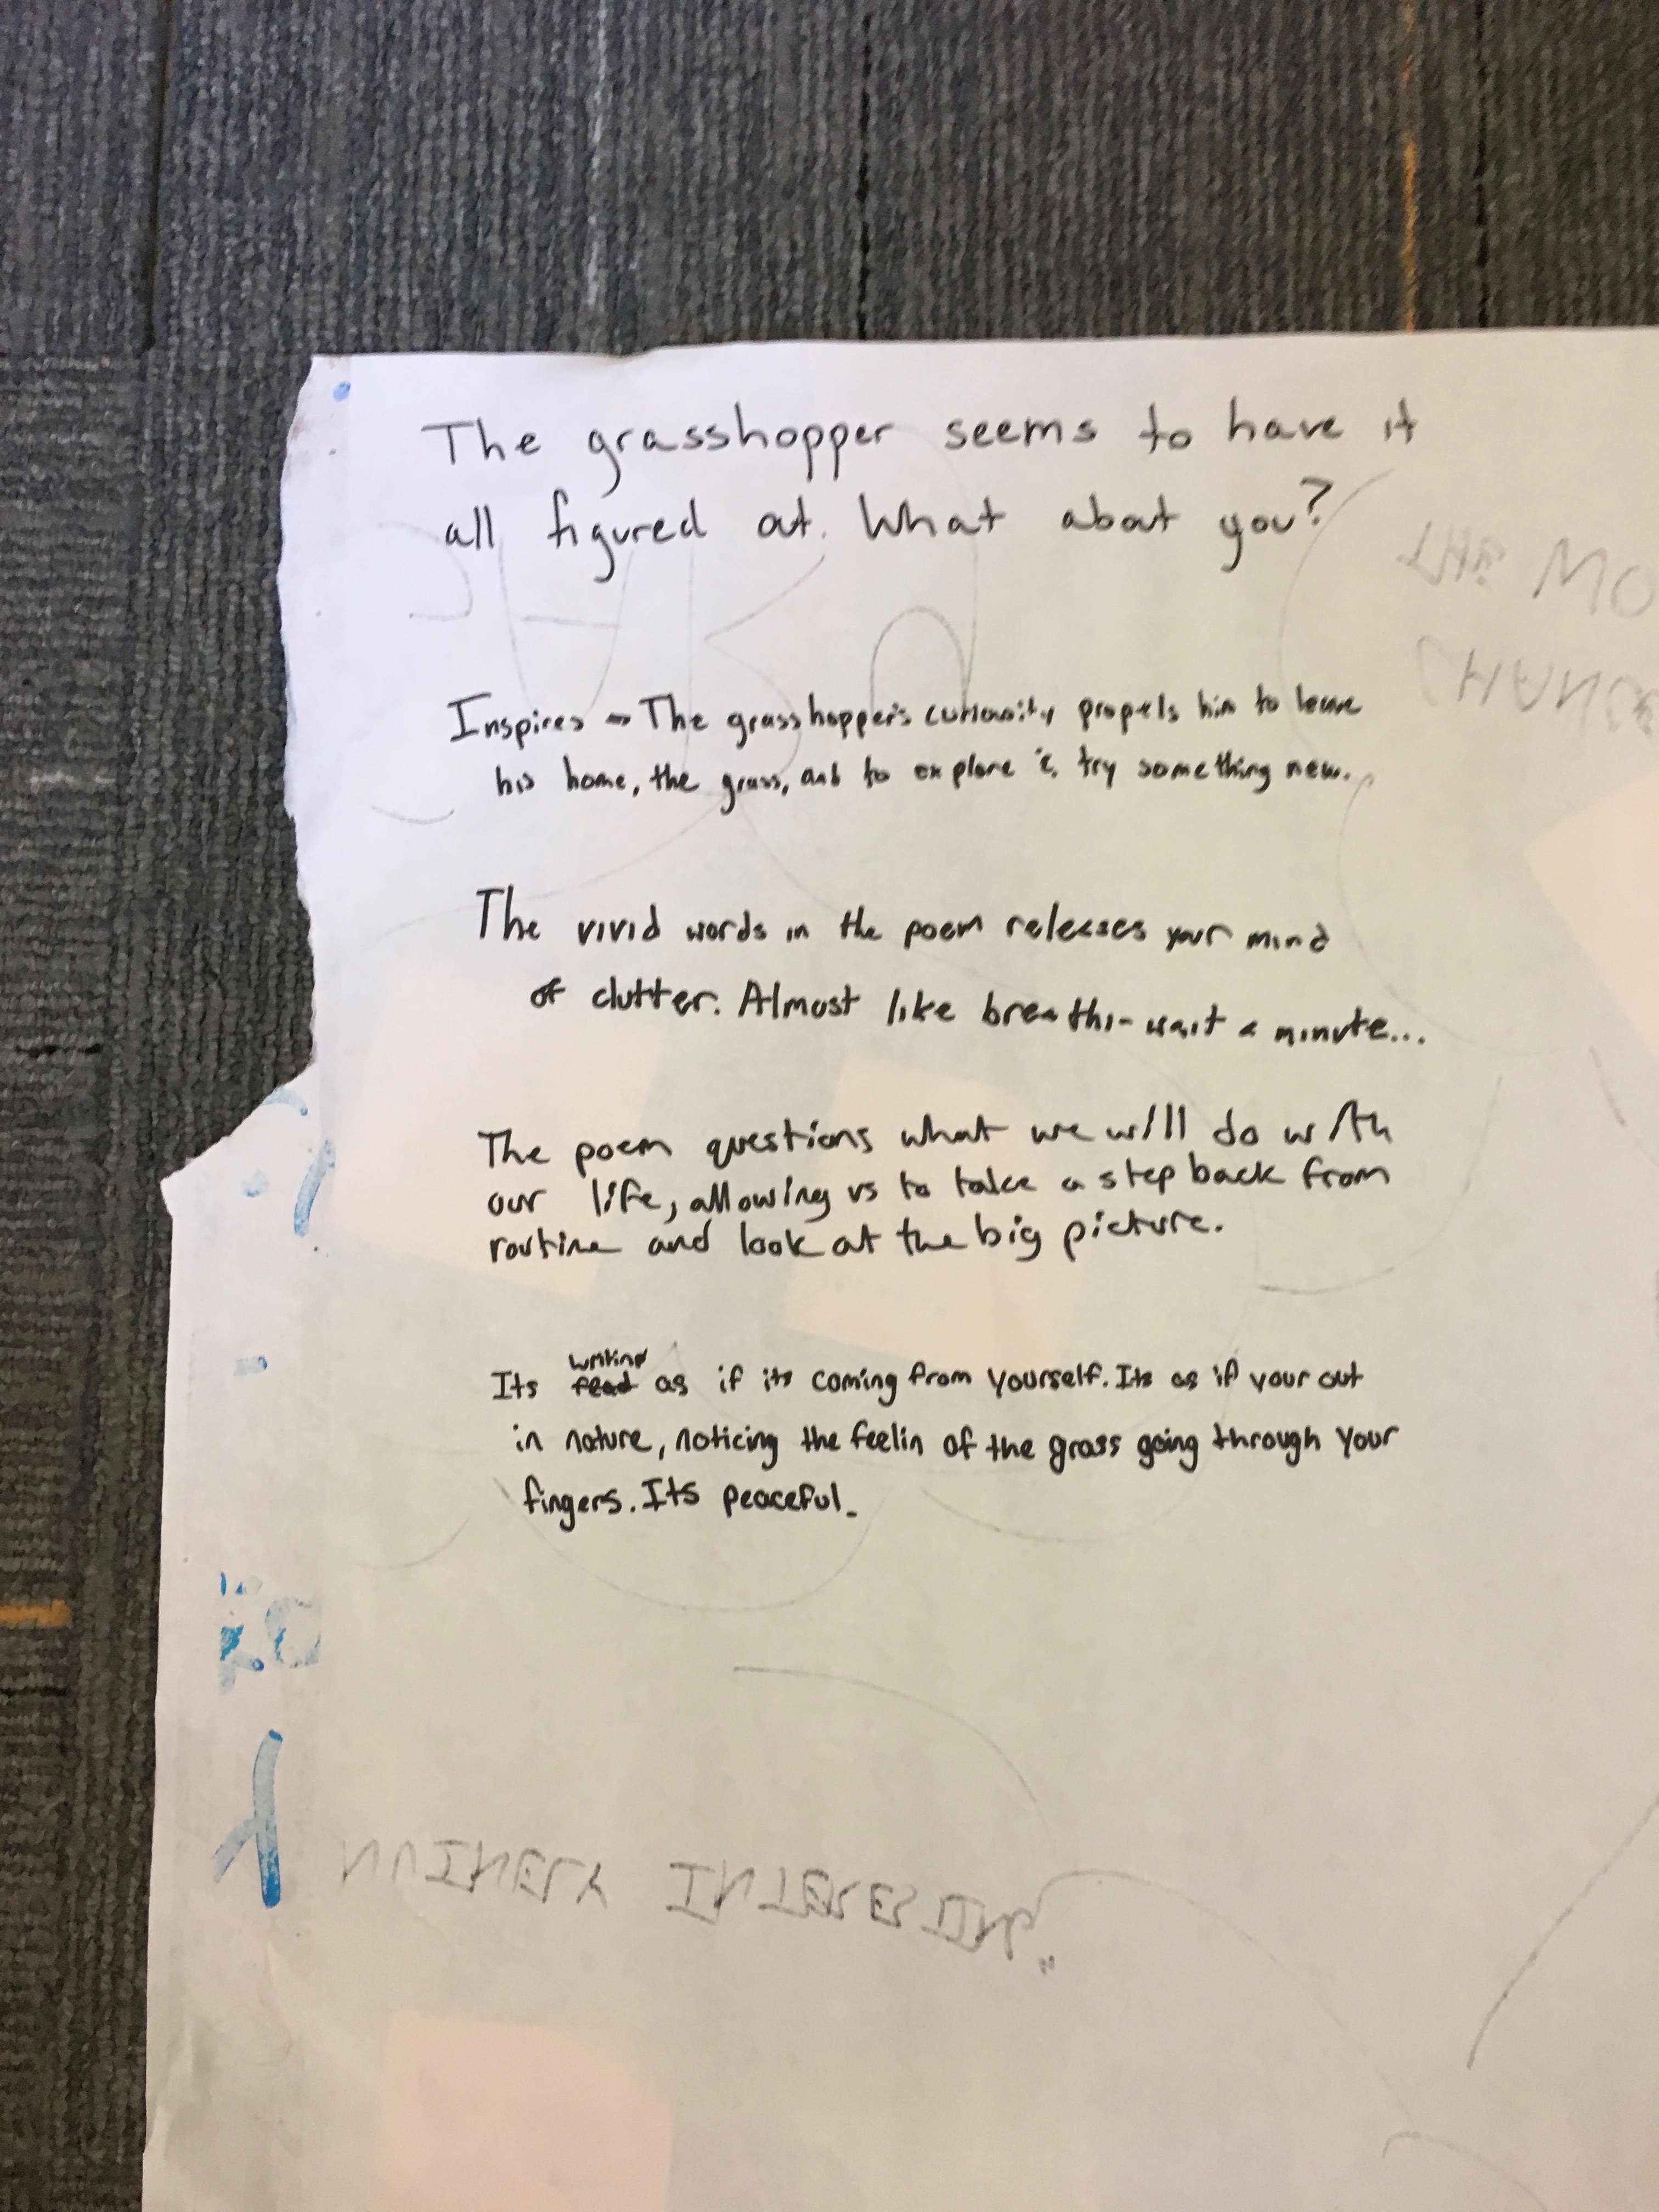 The grasshopper seems to have it
all figured out. What about you?
Inspires → The grasshopper's curiousity propels him to leave
his home, the grass, and to explore & try something new.
The vivid words in the poem releases your mind
of clutter. Almost like breathi- wait a minute...
The poem questions what we will do with
our life, allowing us to take a step back from
routine and look at the big picture.
writing
Its read as if its coming from yourself. Its as if your out
in nature, noticing the feelin of the grass going through your
fingers. Its peaceful.
INTERESTING